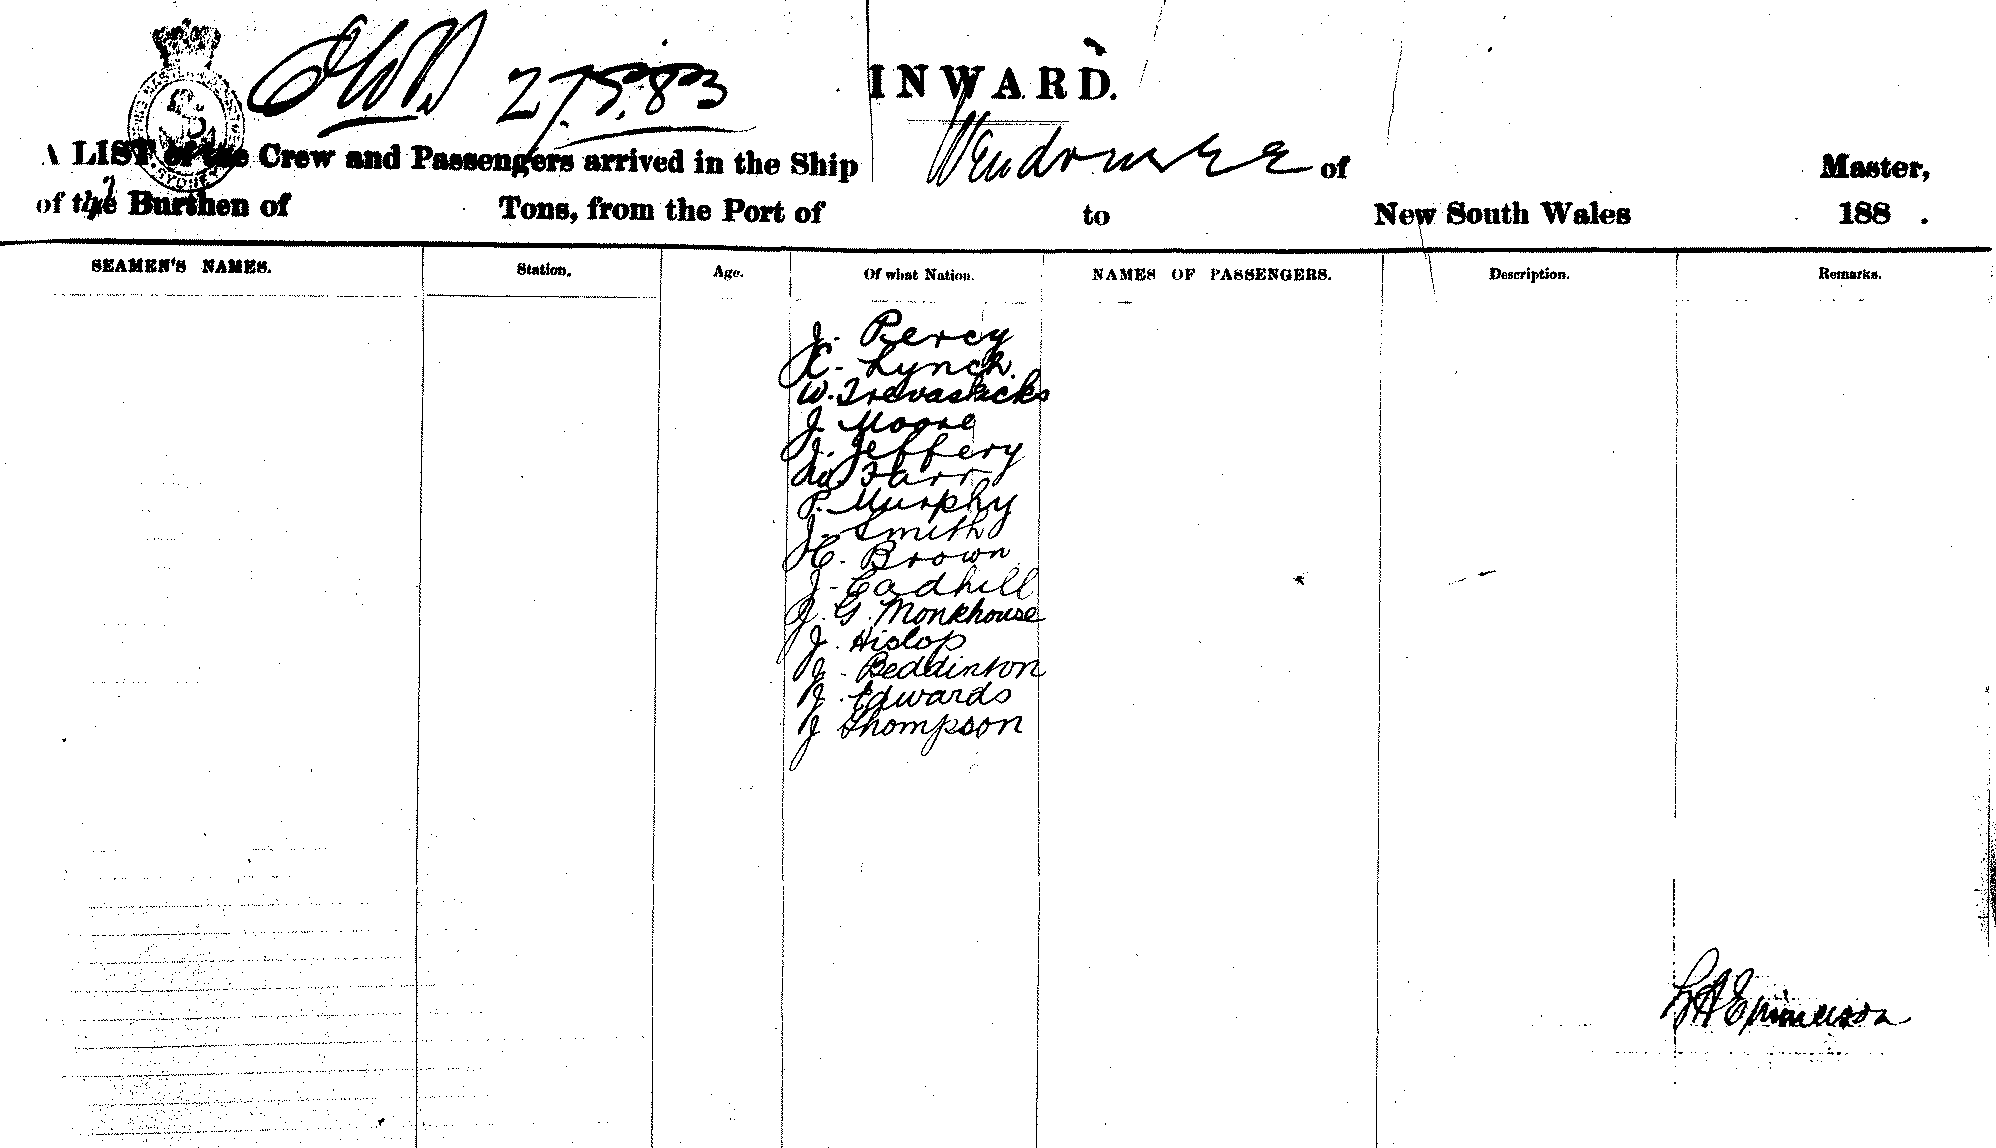 27.5.83
INWARD.
A LIST of the Crew and Passengers arrived in the Ship Wendouree of Master,
of the Burthen of Tons, from the Port of to New South Wales 188 .
SEAMEN'S NAMES. Station. Age. Of what Nation. NAMES OF PASSENGERS. Description. Remarks.
J. Percy
C. Lynch.
W. Trevaskicks
J. Moore
J. Jeffery
Farr
P. Murphy
J. Smith
H. Brown
J. Eadhill
J. G. Monkhouse
J. Hislop
J. Beddinton
J. Edwards
J Thompson